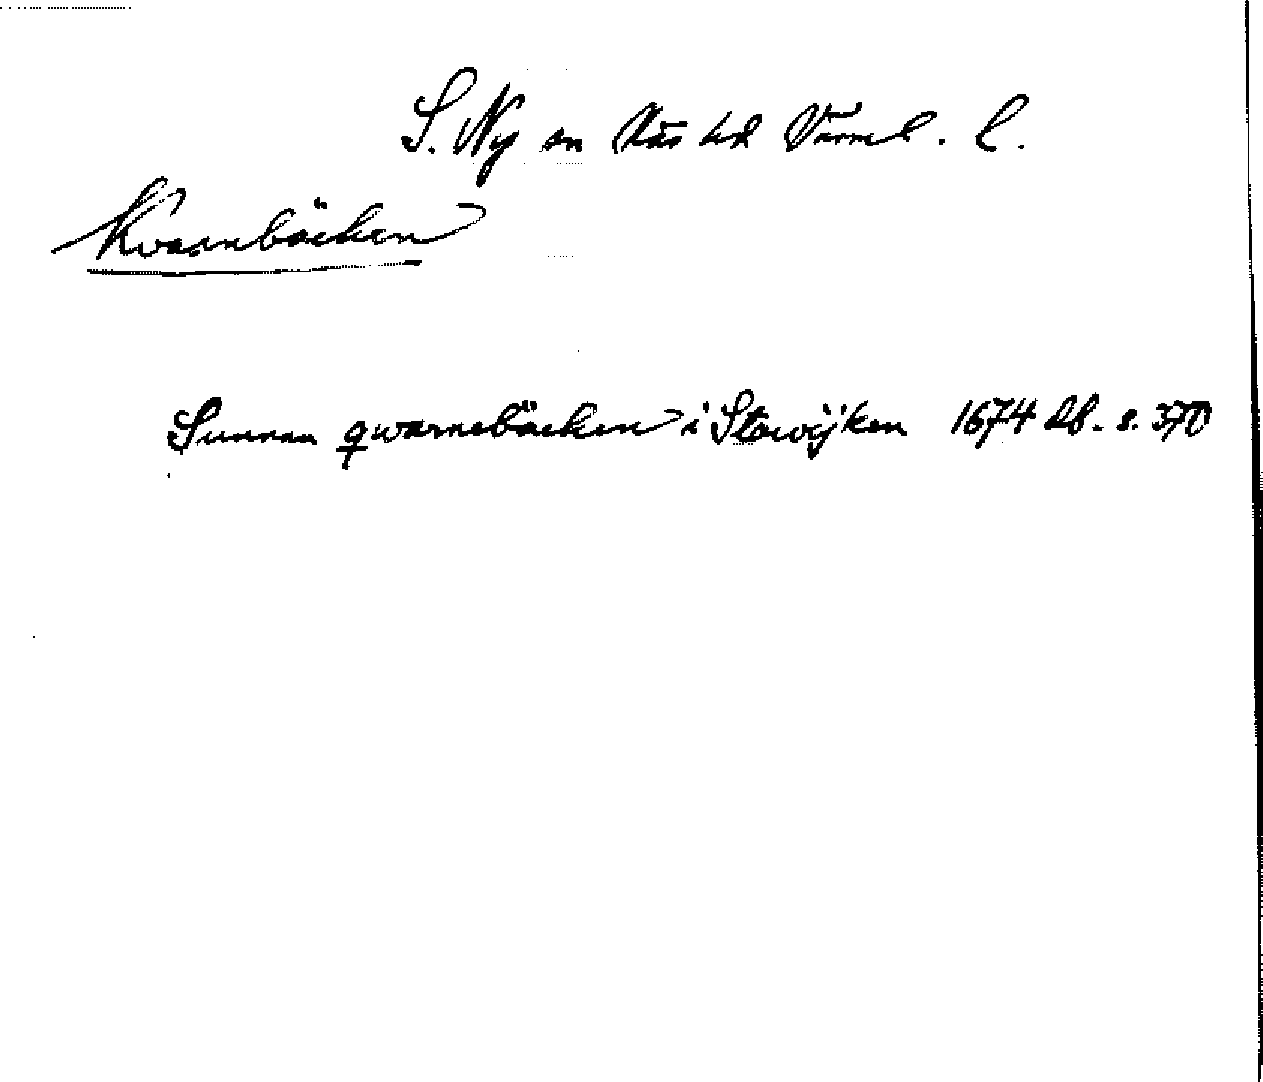 S. Ny sn Näs hd Värml. l.
Kvarnbäcken
Sunnan qwarnebäcken i Stawijken 1674 db. s. 370